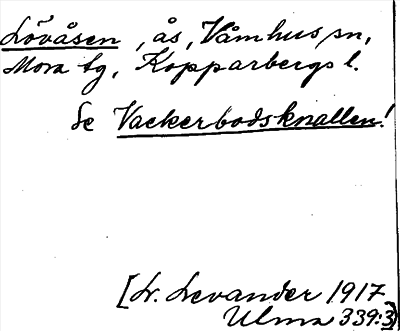 Lövåsen, ås, Våmhus sn,
Mora tg, Kopparbergs l.
Se Vackerbodsknallen!
[Lr. Levander 1917
Ulma 339:3]